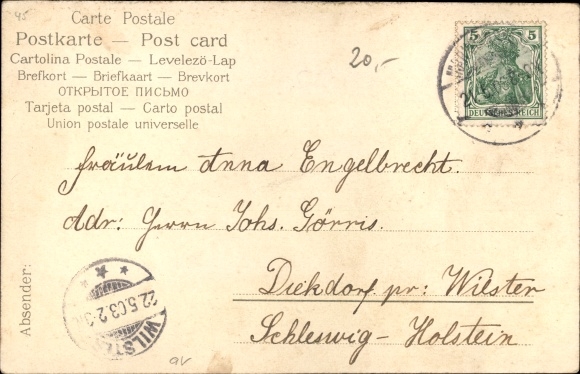 45
Carte Postale
Postkarte — Post card
Cartolina Postale — Levelező-Lap
Brefkort — Briefkaart — Brevkort
ОТКРЫТОЕ ПИСЬМО
Tarjeta postal — Carto postal
Union postale universelle
20,-
5 5
DEUTSCHES REICH
Fräulein Anna Engelbrecht.
Adr: Herrn Johs. Görris.
Diekdorf pr: Wilster
Schleswig-Holstein
Absender:
22.5.03.2-3
WILSTER